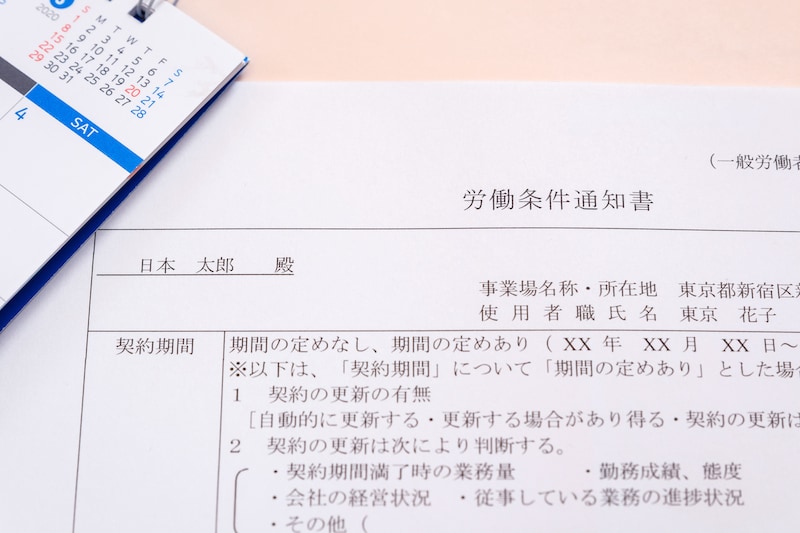 2020
S M T W T F S
1 2 3 4 5 6 7
8 9 10 11 12 13 14
15 16 17 18 19 20 21
22 23 24 25 26 27 28
29 30 31
4
SAT
(一般労働者
労働条件通知書
日本 太郎 殿
事業場名称・所在地 東京都新宿区
使用者職氏名 東京 花子
契約期間
期間の定めなし、期間の定めあり(XX年 XX月 XX日~
※以下は、「契約期間」について「期間の定めあり」とした場合
1 契約の更新の有無
[自動的に更新する・更新する場合があり得る・契約の更新は
2 契約の更新は次により判断する。
・契約期間満了時の業務量 ・勤務成績、態度
・会社の経営状況 ・従事している業務の進捗状況
・その他(